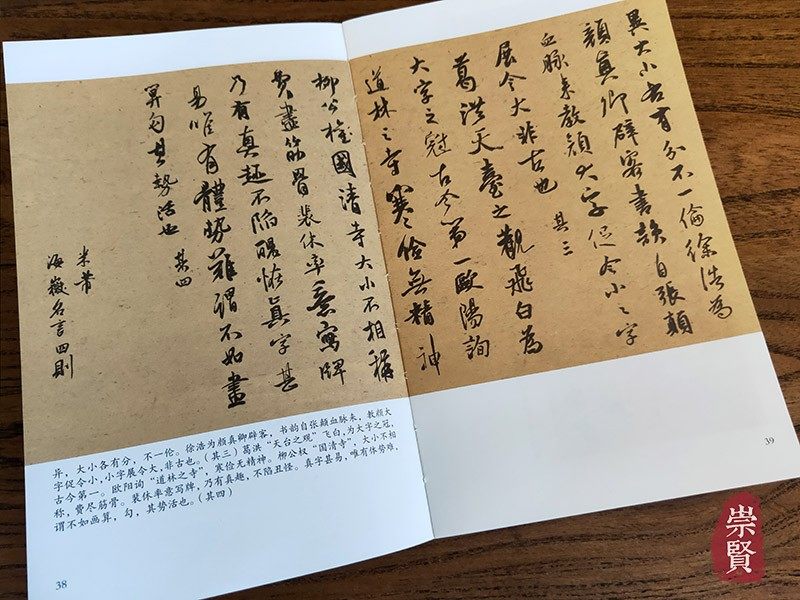 異大小各有分不一倫徐浩為
顏真卿辟客書韻自張顛
血脉来教顏大字促令小〻字
展令大非古也 其三
葛洪天臺之觀飛白為
大字之冠古今第一歐陽詢
道林之寺寒儉無精神
柳公權國清寺大小不相稱
費盡筋骨裴休率意寫牌
乃有真趣不陷醜怪真字甚
易唯有體勢難謂不如畫
筭勻其勢活也 其四
米芾
海嶽名言四則
异，大小各有分，不一伦。徐浩为颜真卿辟客，书韵自张颠血脉来，教颜大
字促令小，小字展令大，非古也。(其三) 葛洪“天台之观”飞白，为大字之冠，
古今第一。欧阳询“道林之寺”，寒俭无精神。柳公权“国清寺”，大小不相
称，费尽筋骨。裴休率意写牌，乃有真趣，不陷丑怪。真字甚易，唯有体势难，
谓不如画算，勾，其势活也。(其四)
38
39
崇賢